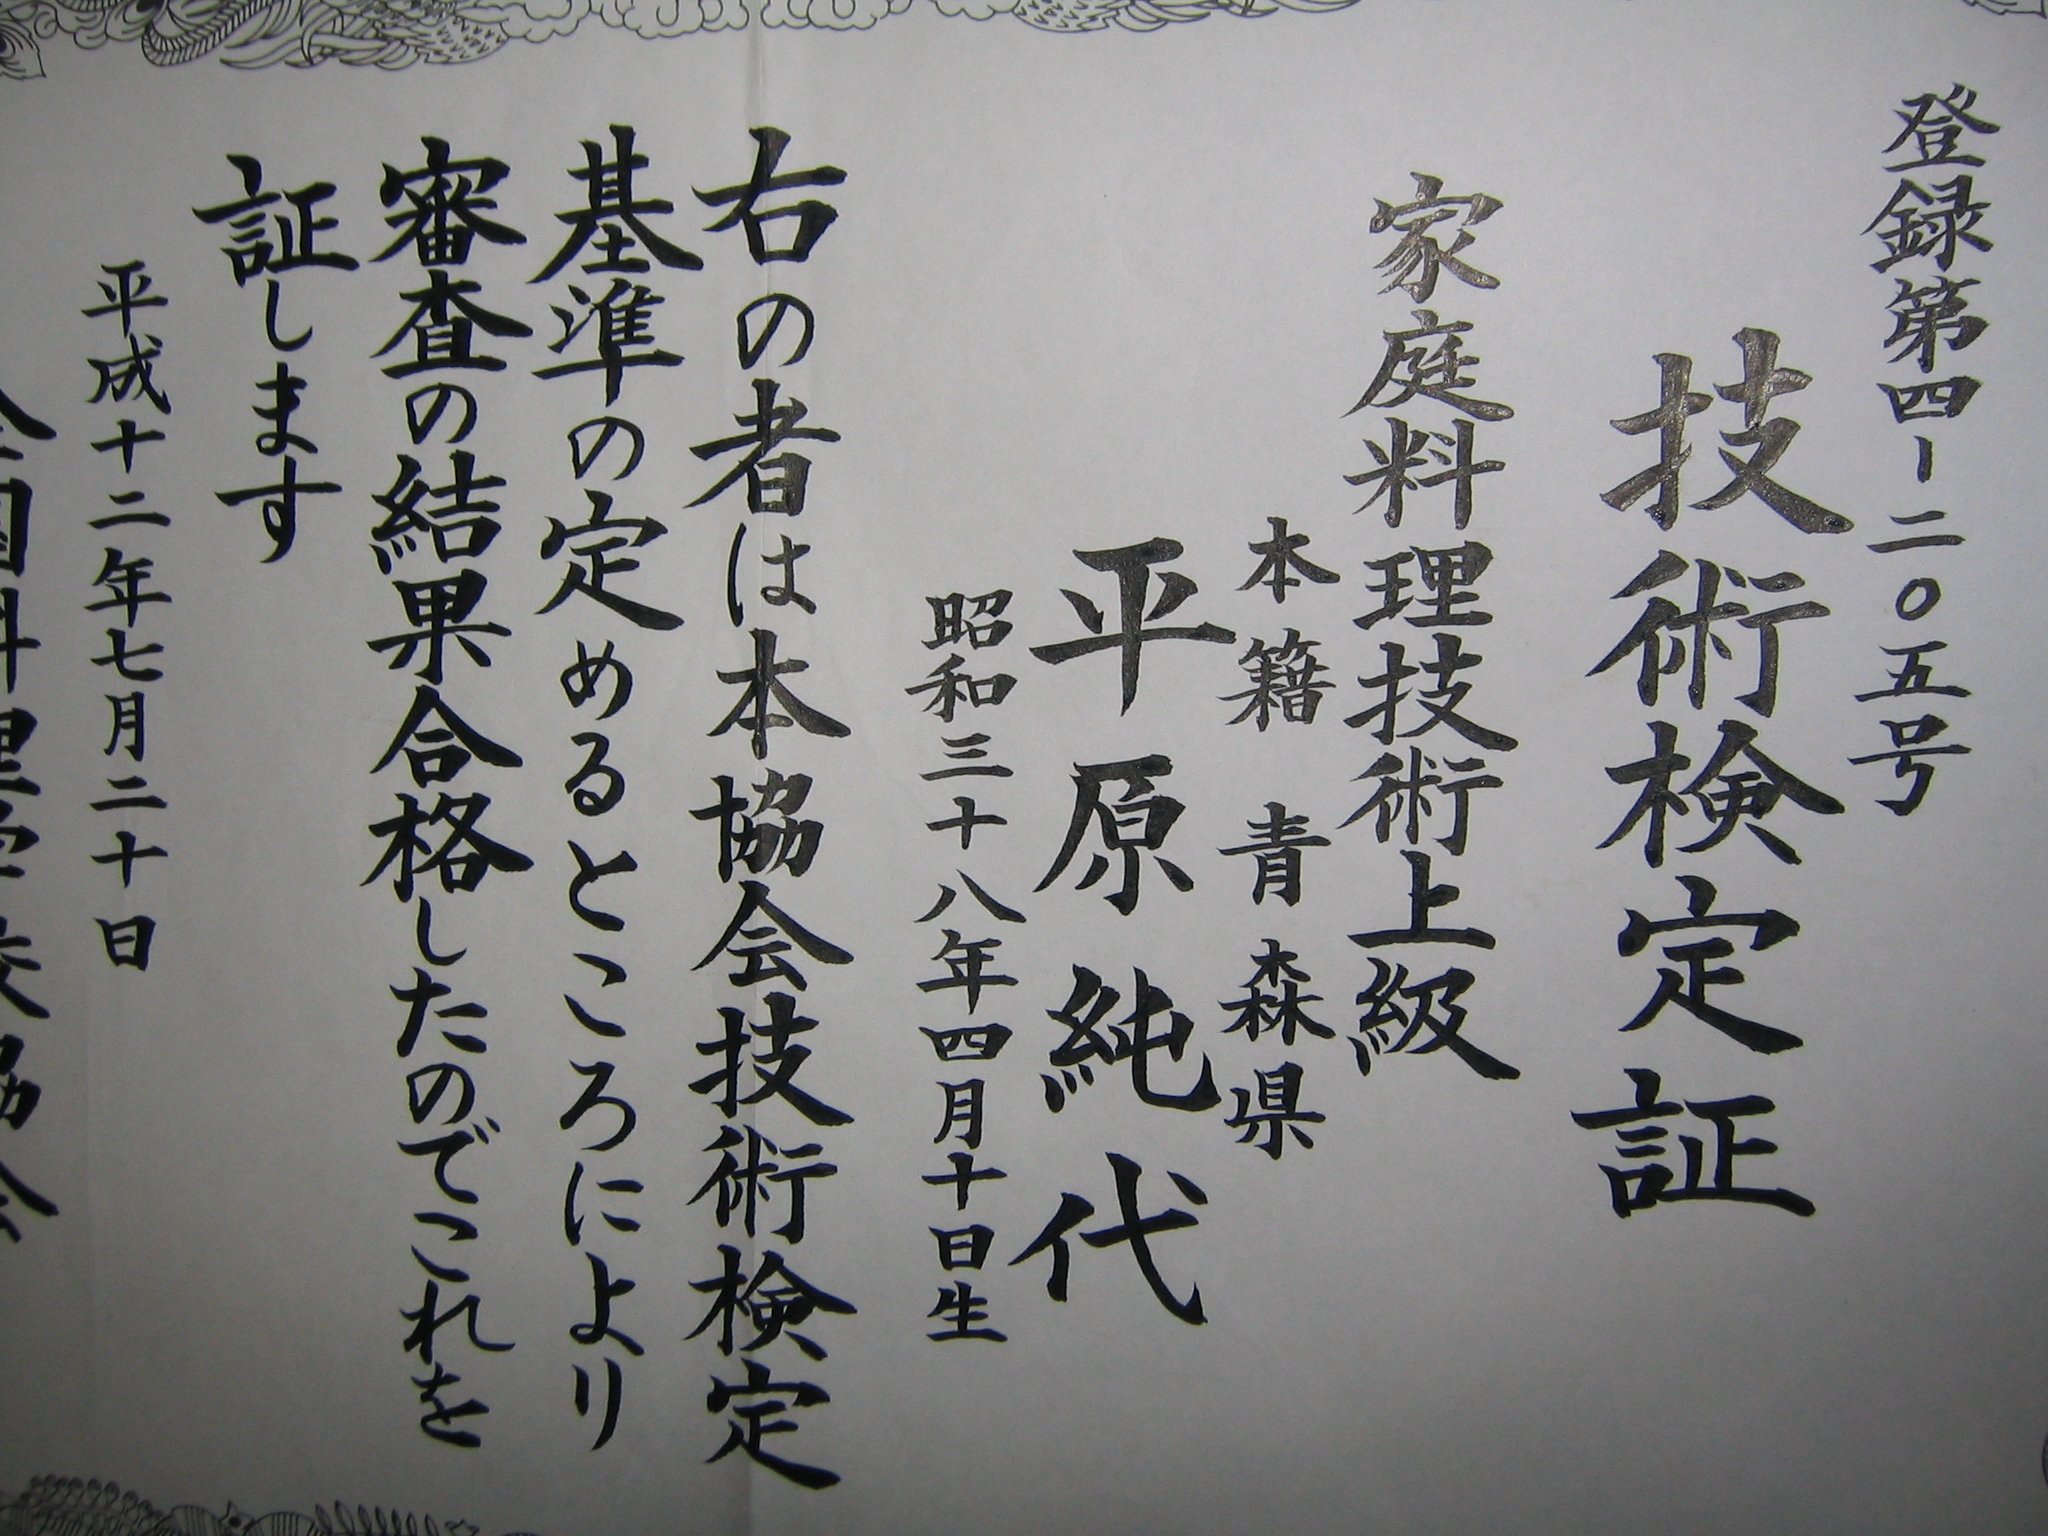 登録第四-二〇五号
技術検定証
家庭料理技術上級
本籍 青森県
平原純代
昭和三十八年四月十日生
右の者は本協会技術検定
基準の定めるところにより
審査の結果合格したのでこれを
証します
平成十二年七月二十日
全国料理学校協会